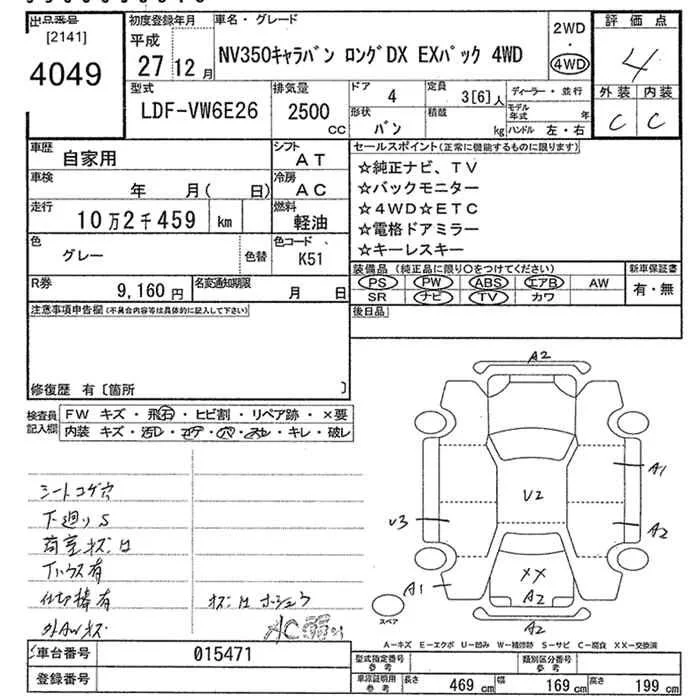 出品番号
[2141]
4049
初度登録年月
平成
27 12月
車名・グレード
NV350キャラバン ロングDX EXパック 4WD
2WD
・
4WD
評価点
4
外装 内装
C C
型式
LDF-VW6E26
排気量
2500
cc
ドア
4
定員
3[6]人
ディーラー・並行
形状
バン
積載
kg
モデル年式 年
ハンドル 左・右
車歴
自家用
シフト
AT
車検
年 月( 日)
冷房
AC
走行
10万2千459 km
燃料
軽油
色
グレー
色替
色コード
K51
R券
9,160円
名変通知期限
月 日
セールスポイント(正常に機能するものに限ります)
☆純正ナビ、TV
☆バックモニター
☆4WD☆ETC
☆電格ドアミラー
☆キーレスキー
装備品 (純正品に限り○をつけてください)
新車保証書
PS PW ABS エアB AW
SR ナビ TV カワ
有・無
後日品
注意事項申告欄(不具合内容等は具体的に記入して下さい)
修復歴 有〔箇所 〕
検査員記入欄
FW キズ・飛石・ヒビ割・リペア跡・×要
内装 キズ・汚レ・コゲ・穴・スレ・キレ・破レ
シートコゲ穴
下廻りS
荷室キズ凹
Tハウス有
仕切棒有
外AWキズ
キズ凹ホシュウ
AC弱
A2
A1
U2
U3
A2
A1
XX
A2
A2
スペア
A－キズ E－エクボ U－凹み W－補修跡 S－サビ C－腐食 XX－交換済
車台番号
015471
登録番号
型式指定番号
参考
類別区分番号
参考
車庫証明用
参考
長さ
469 cm
幅
169 cm
高さ
199 cm